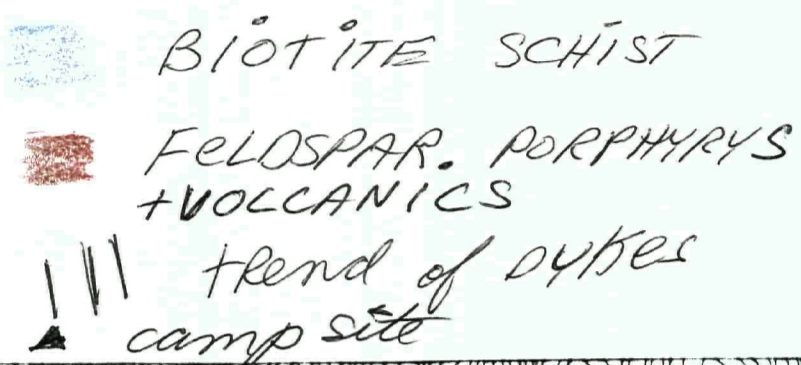 BIOTITE SCHIST
FELDSPAR. PORPHYRYS
+VOLCANICS
trend of DYKES
camp site